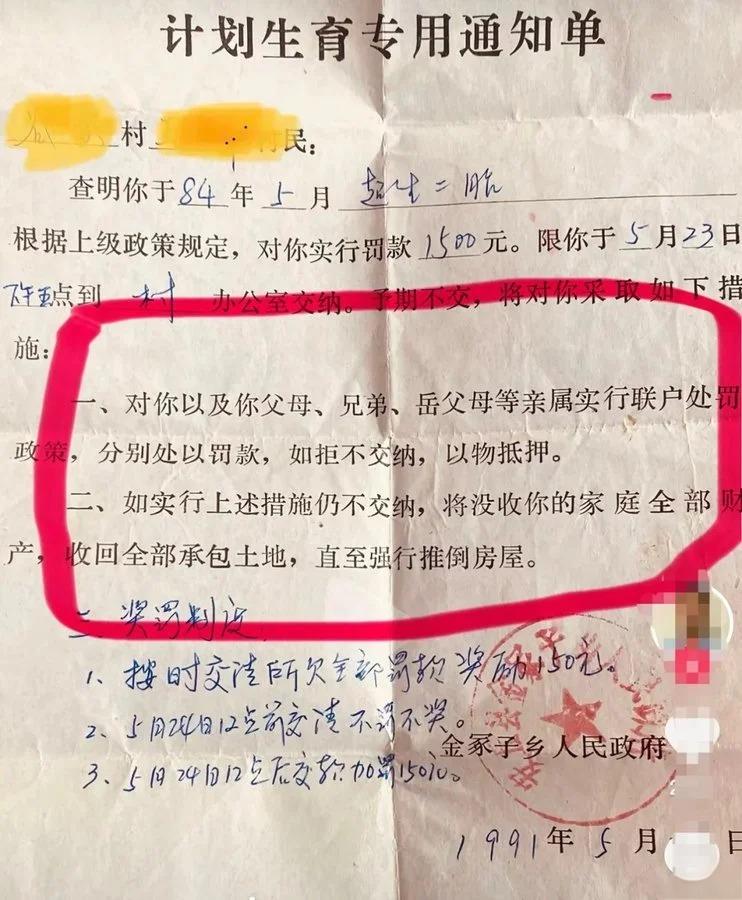 计划生育专用通知单
村 村民：
查明你于84年5月超生二胎
根据上级政策规定，对你实行罚款1500元。限你于5月23日
下午五点到 村 办公室交纳。予期不交，将对你采取如下措
施：
一、对你以及你父母、兄弟、岳父母等亲属实行联户处罚
政策，分别处以罚款，如拒不交纳，以物抵押。
二、如实行上述措施仍不交纳，将没收你的家庭全部财
产，收回全部承包土地，直至强行推倒房屋。
三 奖罚制度
1、按时交清所欠全部罚款奖励150元。
2、5月24日12点前交清不罚不奖。
3、5月24日12点后交款加罚150元。
金冢子乡人民政府
1991年5月 日